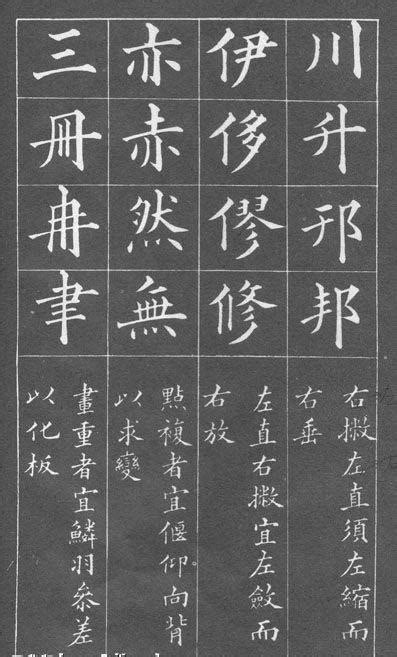 川升邦
右撇左直須左縮而
右垂
伊侈僇修
左直右撇宜左斂而
右放
亦赤然無
點複者宜偃仰向背
以求變
三冊冉聿
畫重者宜鱗羽叅差
以化板